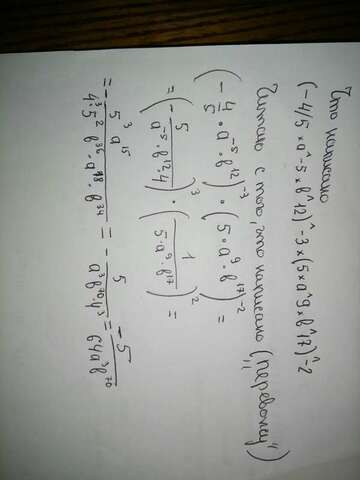 Что написано
(-4/5 × a^-5 × b^12)^-3 × (5 × a^9 × b^17)^-2
Читаю с того, что написано ("перевожу")
(-4/5 · a⁻⁵ · b¹²)⁻³ · (5 · a⁹ · b¹⁷)⁻² =
= (-5/(a⁻⁵ · b¹² · 4))³ · (1/(5 · a⁹ · b¹⁷))² =
= -5³ a¹⁵/(4³ · 5² b³⁶ · a¹⁸ · b³⁴) = -5/(a³ b⁷⁰ · 4³) = -5/(64a³ b⁷⁰)